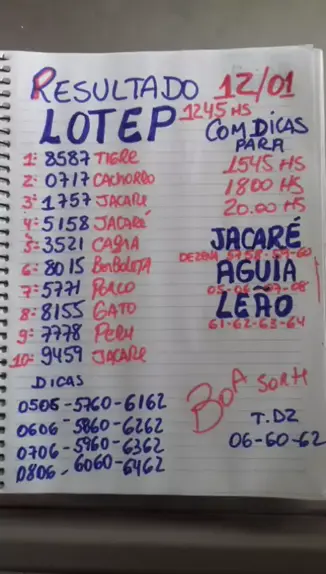 RESULTADO 12/01
LOTEP 1245 HS
COM DICAS
PARA
1545 HS
1800 HS
20.00 HS
1: 8587 TIGRE
2: 0717 CACHORRO
3: 1757 JACARE
4: 5158 JACARÉ
5: 3521 CABRA
6: 8015 BORBOLETA
7: 5771 PORCO
8: 8155 GATO
9: 7778 PERU
10: 9459 JACARE
JACARÉ
DEZENA 57-58-59-60
AGUIA
05-06-07-08
LEÃO
61-62-63-64
DICAS
0506-5760-6162
0606-5860-6262
0706-5960-6362
0806-6060-6462
BOA SORTE
T.DZ
06-60-62